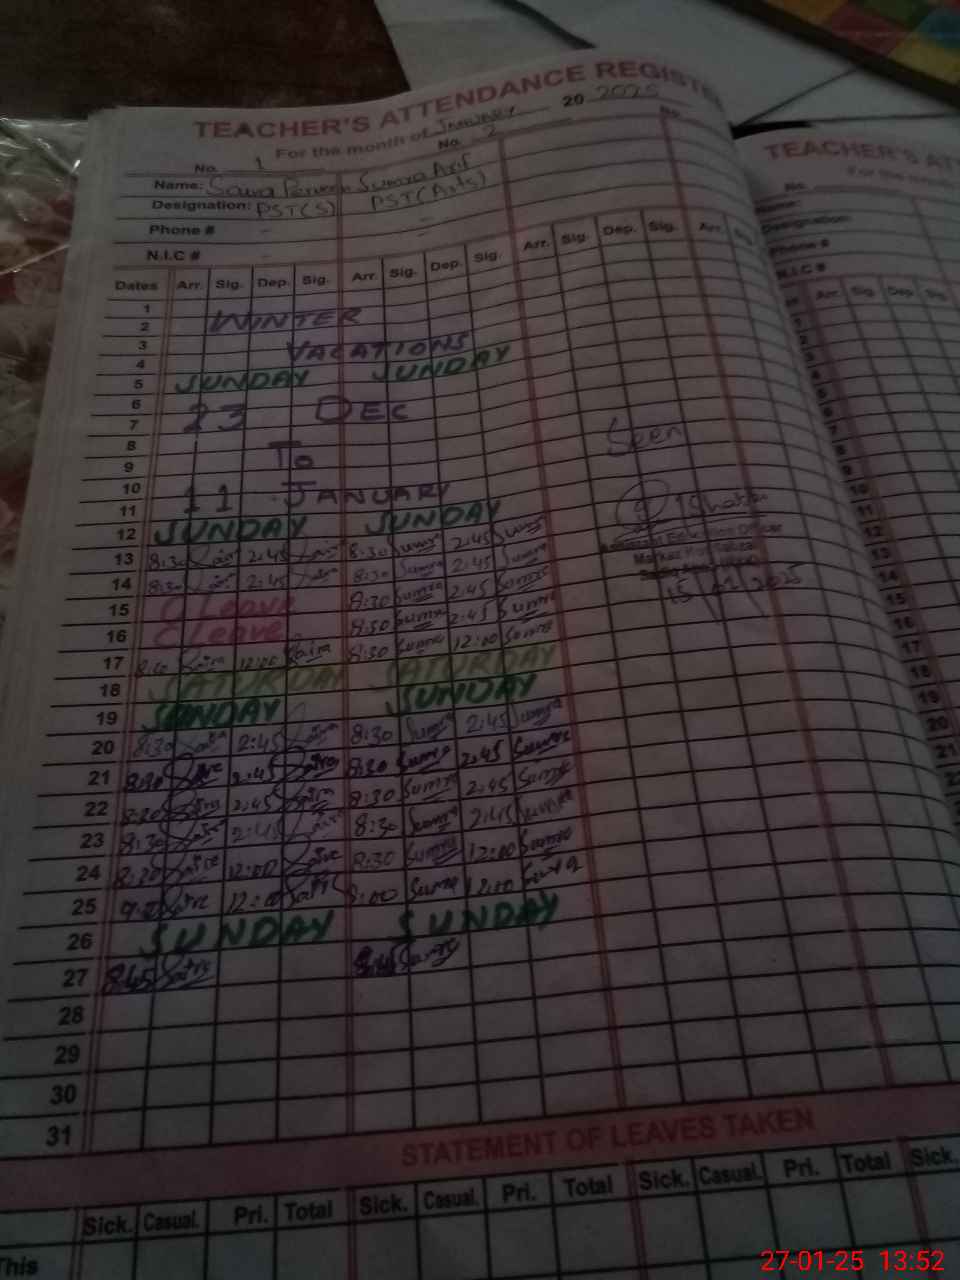 TEACHER'S ATTENDANCE REGISTE
For the month of January 20 2025
No. 1 No. 2 No.
Name: Saira Perveen Sumra Arif
Designation: PST(S) PST(Arts)
Phone # - -
N.I.C # -
Dates Arr. Sig. Dep. Sig. Arr. Sig. Dep. Sig. Arr. Sig. Dep. Sig. Arr. Sig.
1
2 WINTER
3 VACATIONS
4
5 SUNDAY SUNDAY
6
7 23 DEC
8
9 To
10
11 11 JANUARY
12 SUNDAY SUNDAY
13 8:30 Saira 2:45 Saira 8:30 Sumra 2:45 Sumra
14 8:30 Saira 2:45 Saira 8:30 Sumra 2:45 Sumra
15 C Leave 8:30 Sumra 2:45 Sumra
16 C Leave 8:30 Sumra 2:45 Sumra
17 8:30 Saira 12:00 Saira 8:30 Sumra 12:00 Sumra
18 SATURDAY SATURDAY
19 SUNDAY SUNDAY
20 8:30 Saira 2:45 Saira 8:30 Sumra 2:45 Sumra
21 8:30 Saira 2:45 Saira 8:30 Sumra 2:45 Sumra
22 8:30 Saira 2:45 Saira 8:30 Sumra 2:45 Sumra
23 8:30 Saira 2:45 Saira 8:30 Sumra 2:45 Sumra
24 8:30 Saira 12:00 Saira 8:30 Sumra 12:00 Sumra
25 Saira 12:00 Saira 9:00 Sumra 12:00 Sumra
26 SUNDAY SUNDAY
27 8:45 Saira 8:45 Sumra
28
29
30
31
Seen
Assistant Education Officer
15/01/2025
STATEMENT OF LEAVES TAKEN
Sick. Casual. Pri. Total Sick. Casual. Pri. Total Sick. Casual. Pri. Total Sick.
This
TEACHER'S AT
For the
No.
Name:
Designation:
Phone #
N.I.C #
Arr. Sig. Dep. Sig.
27-01-25 13:52